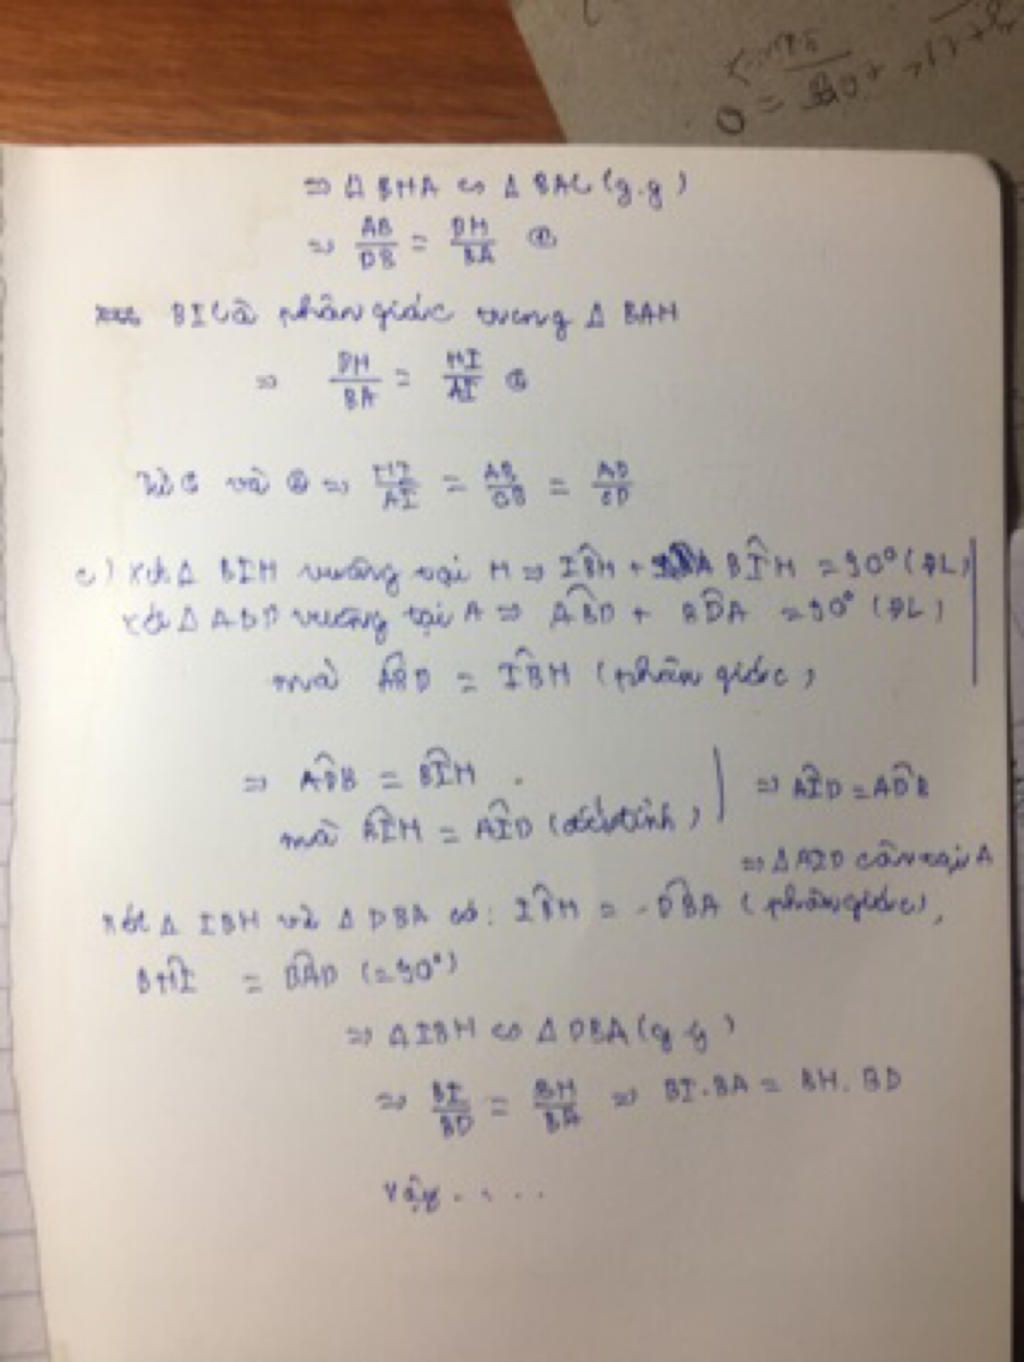 ⇒ Δ BHA ∽ Δ BAC (g.g)
⇒ AB/DB = DH/BA
BI là phân giác trong Δ BAH
⇒ BH/BA = HI/AI
Từ ① và ② ⇒ HI/AI = AB/CB = AD/CD
c) Xét Δ BIH vuông tại H ⇒ IBH + BIH = 90° (ĐL)
Xét Δ ABD vuông tại A ⇒ ABD + BDA = 90° (ĐL)
mà ABD = IBH (phân giác)
⇒ ADB = BIH
mà AIH = AID (đối đỉnh)
⇒ AID = ADB
⇒ Δ AID cân tại A
Xét Δ IBH và Δ DBA có: IBH = DBA (phân giác),
BHI = BAD (=90°)
⇒ Δ IBH ∽ Δ DBA (g.g)
⇒ BI/BD = BH/BA ⇒ BI.BA = BH.BD
Vậy.....